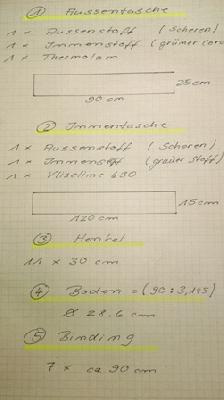 ① Aussentasche
1 x Aussenstoff (Schoren)
1 x Innenstoff (grüner
1 x Thermolam
25 cm
90 cm
② Innentasche
1 x Aussenstoff (Schoren)
1 x Innenstoff (grauer Stoff)
1 x Vlieseline 630
15 cm
120 cm
③ Henkel
11 x 30 cm
④ Boden = (90 : 3,145)
Ø 28.6 cm
⑤ Binding
7 x ca. 90 cm